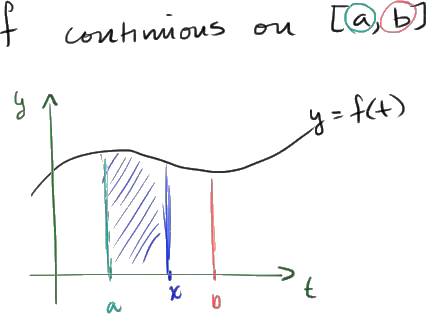 f continious on [a, b]
y
y = f(t)
a
x
b
t